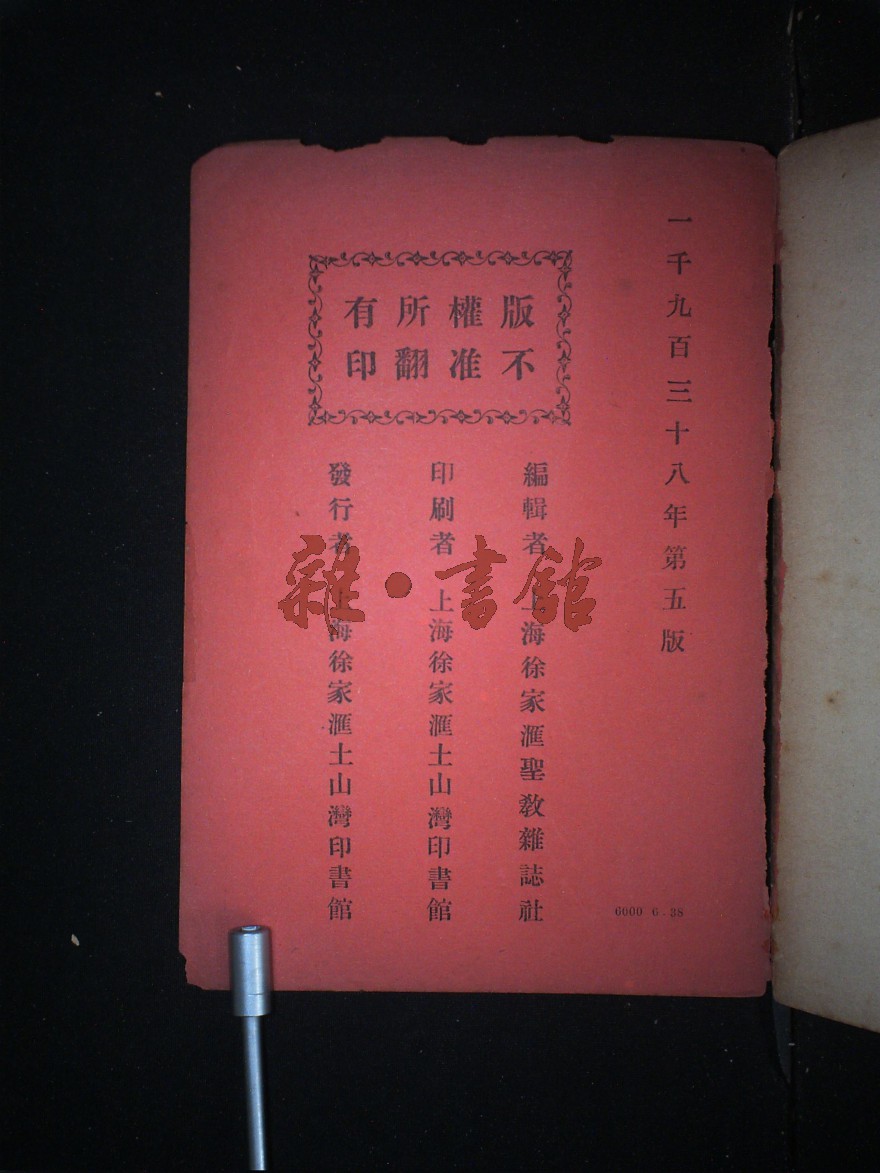 一千九百三十八年第五版
版權所有
不准翻印
編輯者 上海徐家滙聖教雜誌社
印刷者 上海徐家滙土山灣印書館
發行者 上海徐家滙土山灣印書館
6000 6-38
雜·書館